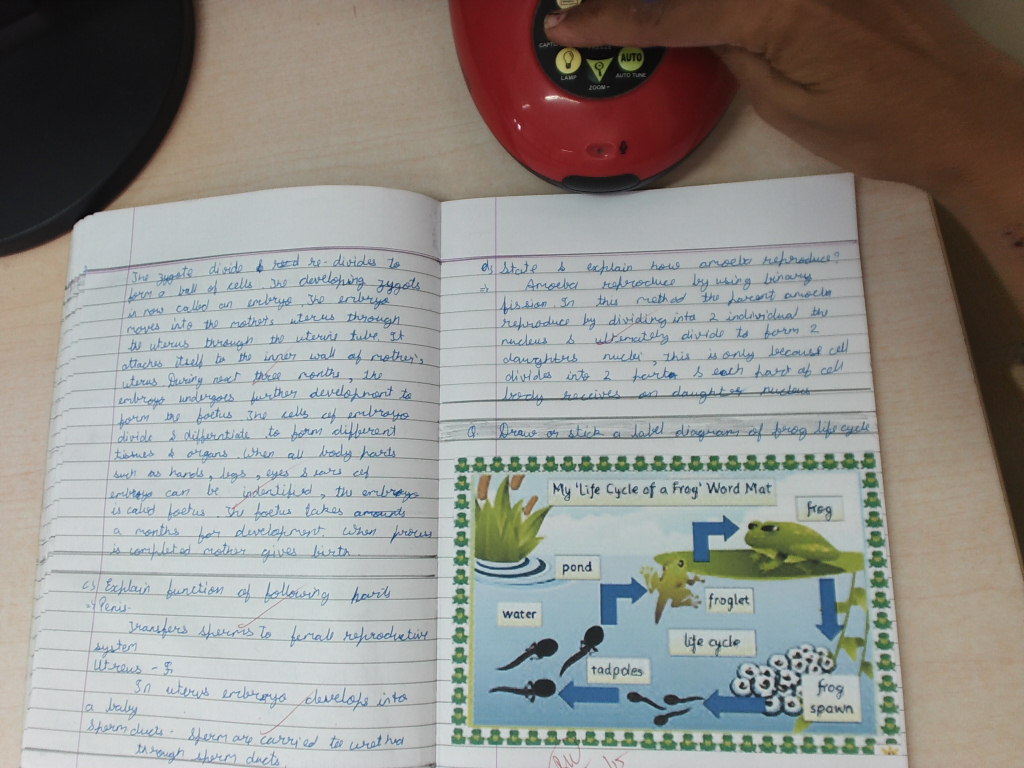 CAPTU
LAMP
AUTO
ZOOM-
AUTO TUNE
The zygote divide & re-divides to
form a ball of cells. The developing zygote
is now called an embryo. The embryo
moves into the mother's uterus through
the uterus through the uterine tube. It
attaches itself to the inner wall of mother's
uterus During next three months, the
embryo undergoes further development to
form the foetus The cells of embryo
divide & differntiate to form different
tissues & organs. When all body parts
such as hands, legs, eyes & ears of
embryo can be indentified, the embryo
is called foetus. The foetus takes amounts
a months for development. When process
is completed mother gives birth.
c) Explain function of following parts
→ Penis-
Transfers sperms to female reproductive
system
Utreus -
In uterus embryo develops into
a baby
sperm ducts - sperm are carried to urethra
through sperm ducts
d) State & explain how amoeba reproduce?
→ Amoeba reproduce by using binary
fission. In this method the parent amoeba
reproduce by dividing into 2 individual the
nucleus & ultimately divide to form 2
daughters nuclei, this is only because cell
divides into 2 parts & each part of cell
body receives on daughter nucleus
Q. Draw or stick a label diagram of frog life cycle
My 'Life Cycle of a Frog' Word Mat
frog
pond
froglet
water
life cycle
tadpoles
frog
spawn